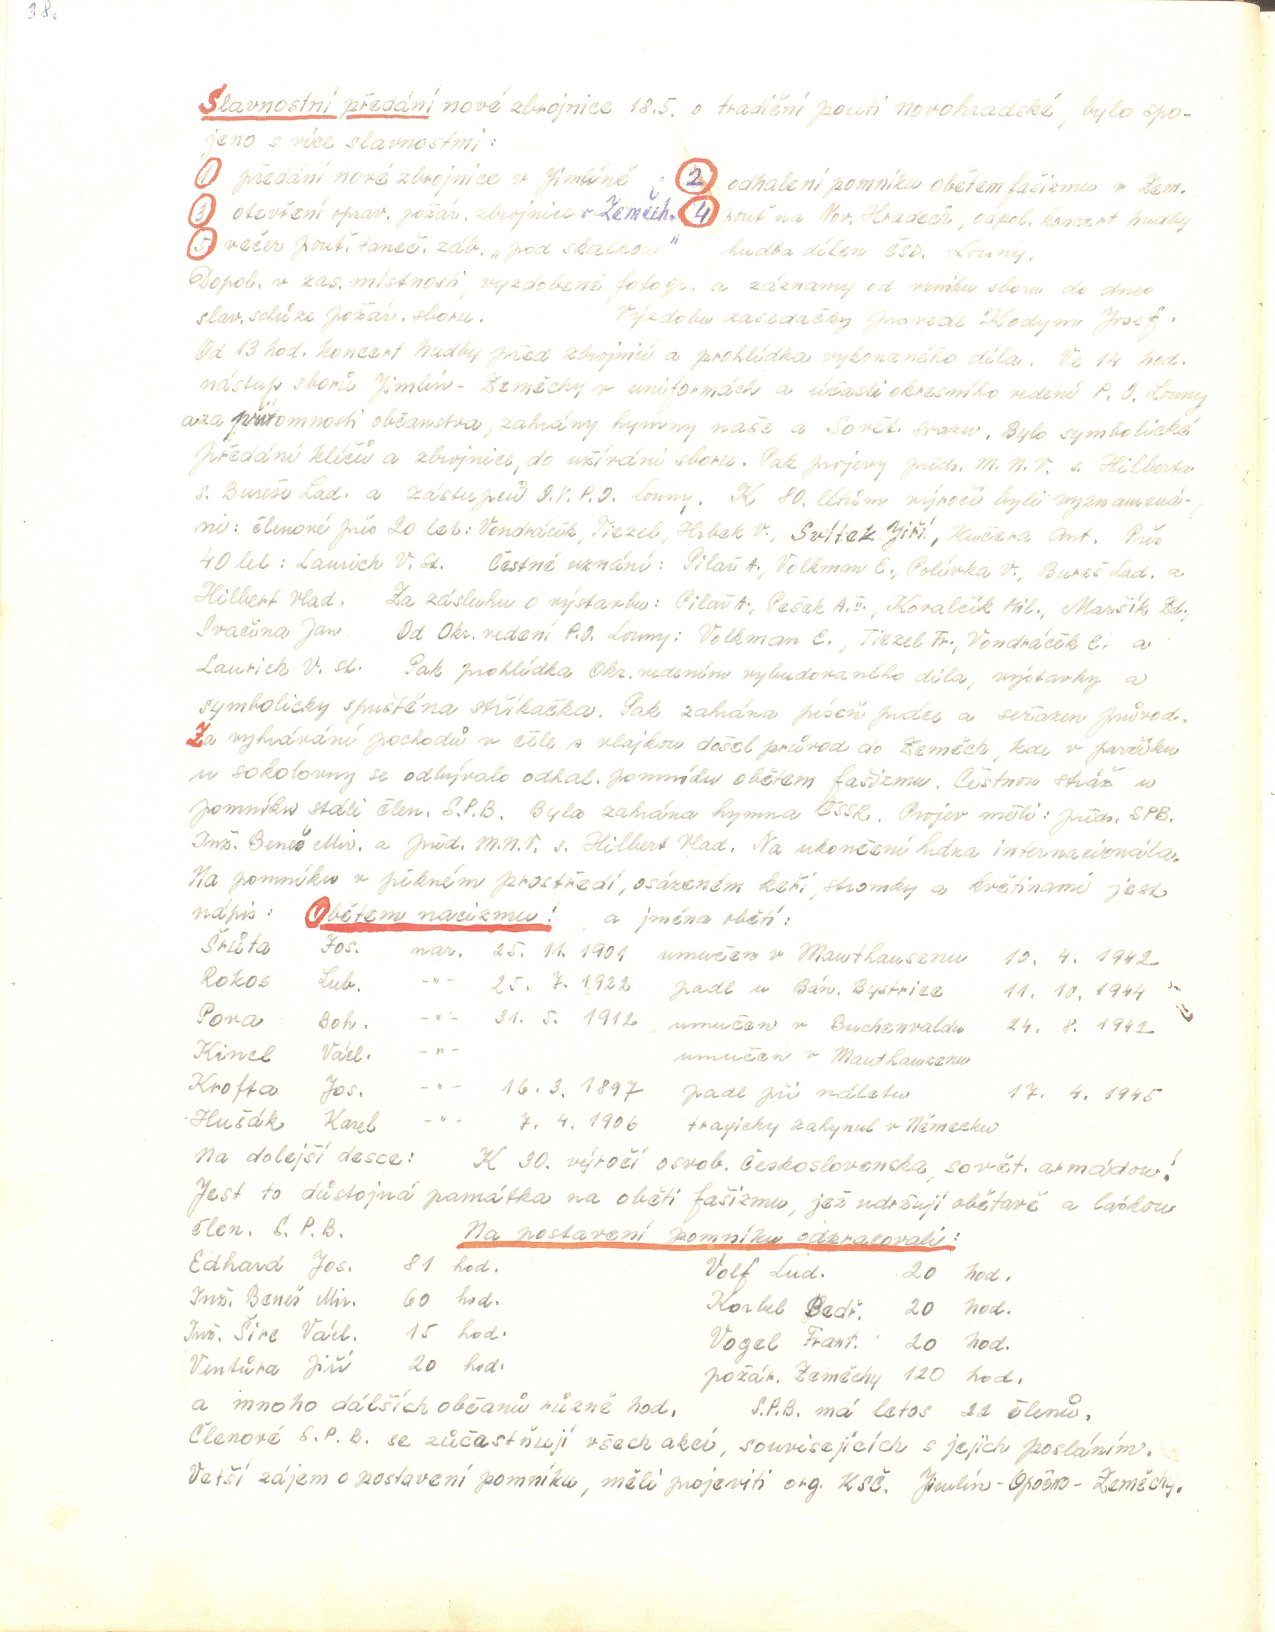 38.
Slavnostní předání nové zbrojnice 18.5. o tradiční pouti Novohradské, bylo spo-
jeno s více slavnostmi:
1 předání nové zbrojnice v Jimlíně 2 odhalení pomníku obětem fašizmu v Zem.
3 otevření oprav. požár. zbrojnice v Zeměch. 4 pouť na Nov. Hradech, odpol. koncert hudby
5 večer pouť. taneč. záb. „pod skalkou" hudba dílen ČSD. Louny.
Dopol. v zas. místnosti, vyzdobené fotogr. a záznamy od vzniku sboru do dnes
slav. schůze požár. sboru. Výzdobu zasedačky provedl Kodym Josef.
Od 13 hod. koncert hudby před zbrojnicí a prohlídka vykonaného díla. Ve 14 hod.
nástup sborů Jimlín - Zeměchy v uniformách a účasti okresního vedení P. O. Louny
a za přítomnosti občanstva, zahrány hymny naše a Sovět. svazu. Bylo symbolické
předání klíčů a zbrojnice, do užívání sboru. Pak projevy předs. M. N. V. s. Hilberta
s. Bureše Lad. a zástupců O.V. P.O. Louny. K 80. létům výročí byli vyznamená-
ni: členové přes 20 let: Vondráček, Tiezel, Hrbek V., Svítek Jiří, Kučera Ant. Přes
40 let: Laurich V. st. Čestné uznání: Pilař A., Volkman E., Polívka V., Bureš Lad. a
Hilbert Vlad. Za zásluhu o výstavbu: Pilař A., Pešek A. II., Kovalčík Mil., Maršík Zd.,
Svačina Jan Od Okr. vedení P.O. Louny: Volkman E., Tiezel Fr., Vondráček C. a
Laurich V. st. Pak prohlídka Okr. vedením vybudovaného díla, výstavky a
symbolicky spuštěna stříkačka. Pak zahrána píseň práce a seřazen průvod.
Za vyhrávání pochodů v čele s vlajkou došel průvod do Zeměch, kde v parčíku
u sokolovny se odbývalo odhal. pomníku obětem fašizmu. Čestnou stráž u
pomníku stáli člen. S.P.B. Byla zahrána hymna ČSSR. Projev měli: předs. SPB.
Inž. Beneš Mir. a před. M.N.V. s. Hilbert Vlad. Na ukončení hrána internacionála.
Na pomníku v pěkném prostředí, osázeném keři, stromky a květinami jest
nápis: Obětem nacizmu! a jména obětí:
Šrůta Jos. nar. 25. 11. 1901 umučen v Mauthausenu 10. 4. 1942
Rokos Lub. -"- 25. 7. 1922 padl u Báň. Bystrice 11. 10. 1944
Pova Boh. -"- 31. 5. 1912 umučen v Buchenvaldu 24. 8. 1942
Kincl Václ. -"- umučen v Mauthauzenu
Krofta Jos. -"- 16. 3. 1897 padl při náletu 17. 4. 1945
Hušák Karel -"- 7. 4. 1906 tragicky zahynul v Německu
Na dolejší desce: K 30. výročí osvob. Československa, sovět. armádou!
Jest to důstojná památka na oběti fašizmu, jež udržují obětavě a láskou
člen. S. P. B. Na postavení pomníku odpracovali:
Edhard Jos. 81 hod. Volf Lud. 20 hod.
Inž. Beneš Mir. 60 hod. Korbel Bedř. 20 hod.
Inž. Šire Václ. 15 hod. Vogel Frant. 20 hod.
Ventura Jiří 20 hod. požár. Zeměchy 120 hod.
a mnoho dalších občanů různě hod. S.P.B. má letos 22 členů.
Členové S. P. B. se zůčastňují všech akcí, souvisejících s jejich posláním.
Vetší zájem o postavení pomníku, měli projeviti org. KSČ. Jimlín - Opočno - Zeměchy.